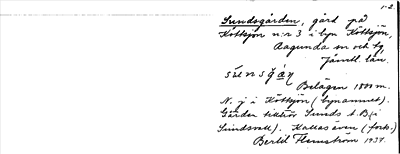 1-2.
Sundsgården, gård på
Köttsjön n:r 3 i byn Köttsjön,
Ragunda sn och tg,
Jämtl. län.
Belägen 1800 m.
N. j i Köttsjön (bynamnet).
Gården tillhör Sunds A.B. (i
Sundsvall). Kallas även (fork.)
Bertil Flemström 1937.